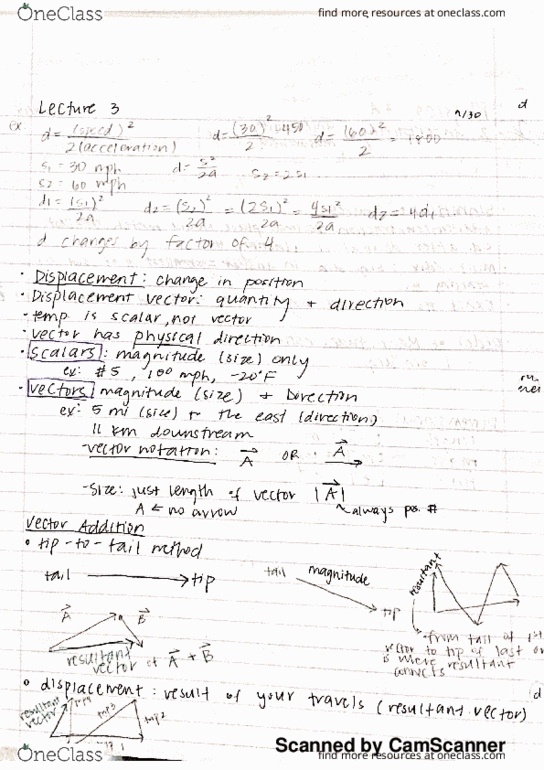 OneClass
find more resources at oneclass.com
Lecture 3
9/30
d
ex
d = (speed)² / 2(acceleration)
d = (30)² / 2 = 450
d = (60)² / 2 = 1800
s₁ = 30 mph
d = s² / 2a
s₂ = 2s₁
s₂ = 60 mph
d₁ = (s₁)² / 2a
d₂ = (s₂)² / 2a = (2s₁)² / 2a = 4s₁² / 2a
d₂ = 4d₁
d changes by factor of 4
· Displacement: change in position
· Displacement vector: quantity + direction
- temp is scalar, not vector
· vector has physical direction
· scalars: magnitude (size) only
ex: #5, 100 mph, -20°F
· vectors: magnitude (size) + Direction
ex: 5 mi (size) to the east (direction)
11 km downstream
- vector notation: A OR A
- size: just length of vector |A|
A ← no arrow
~always pos. #
Vector Addition
• tip-to-tail method
tail → tip
tail magnitude tip
resultant
A B
resultant vector of A + B
- from tail of 1st
vector to tip of last
is where resultant
connects
• displacement: result of your travels (resultant vector)
d
resultant vector
trip 3
trip 2
Scanned by CamScanner
OneClass
find more resources at oneclass.com